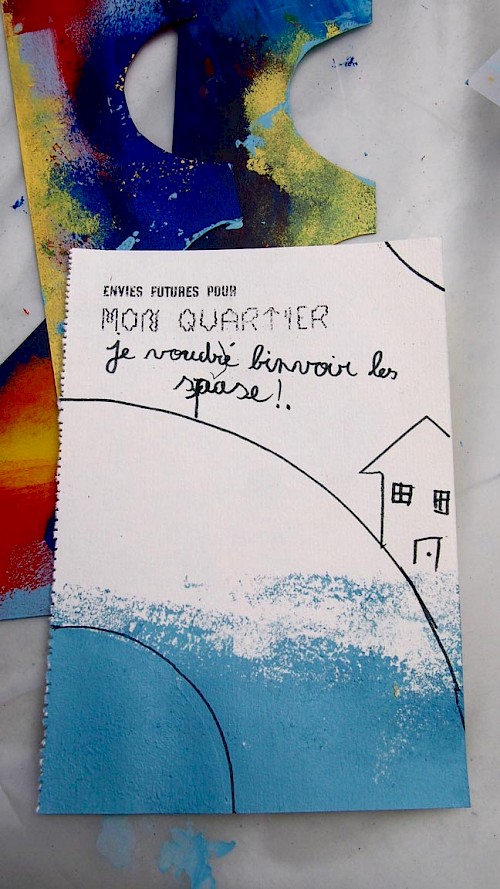 ENVIES FUTURES POUR
MON QUARTIER
Je voudré binvoir les
spàse!.